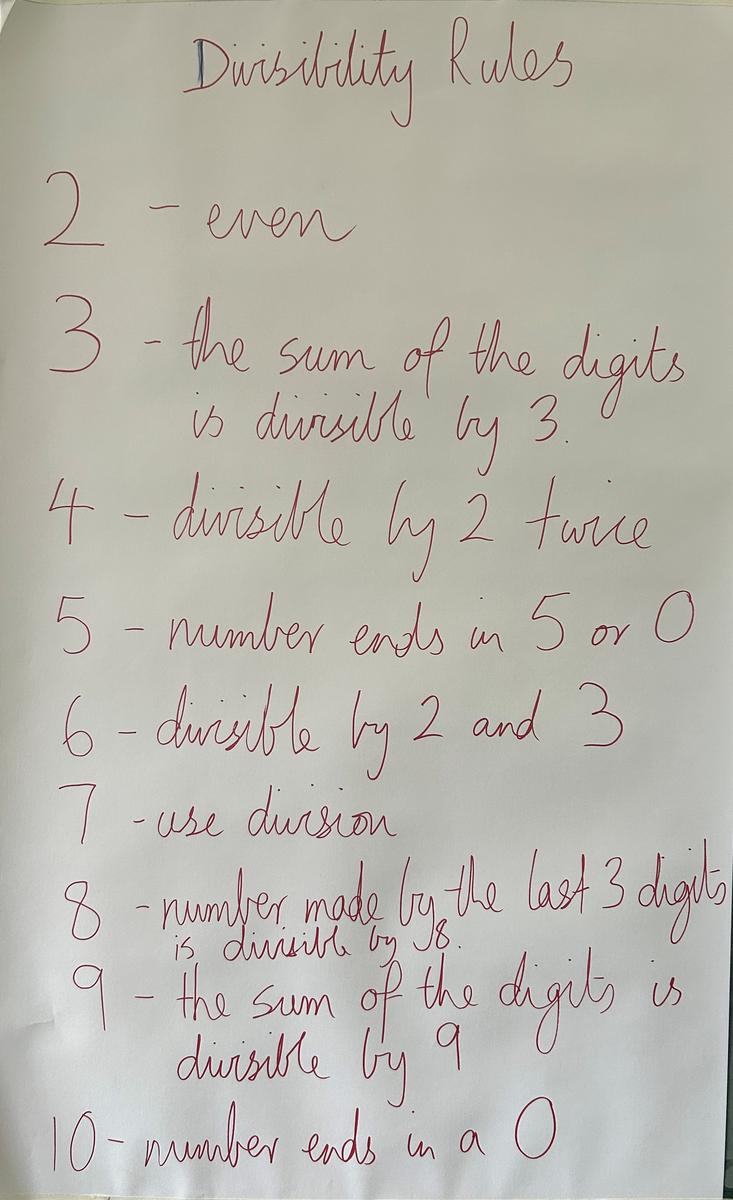 Divisibility Rules
2 - even
3 - the sum of the digits
is divisible by 3.
4 - divisible by 2 twice
5 - number ends in 5 or 0
6 - divisible by 2 and 3
7 - use division
8 - number made by the last 3 digits
is divisible by 8.
9 - the sum of the digits is
divisible by 9
10 - number ends in a 0